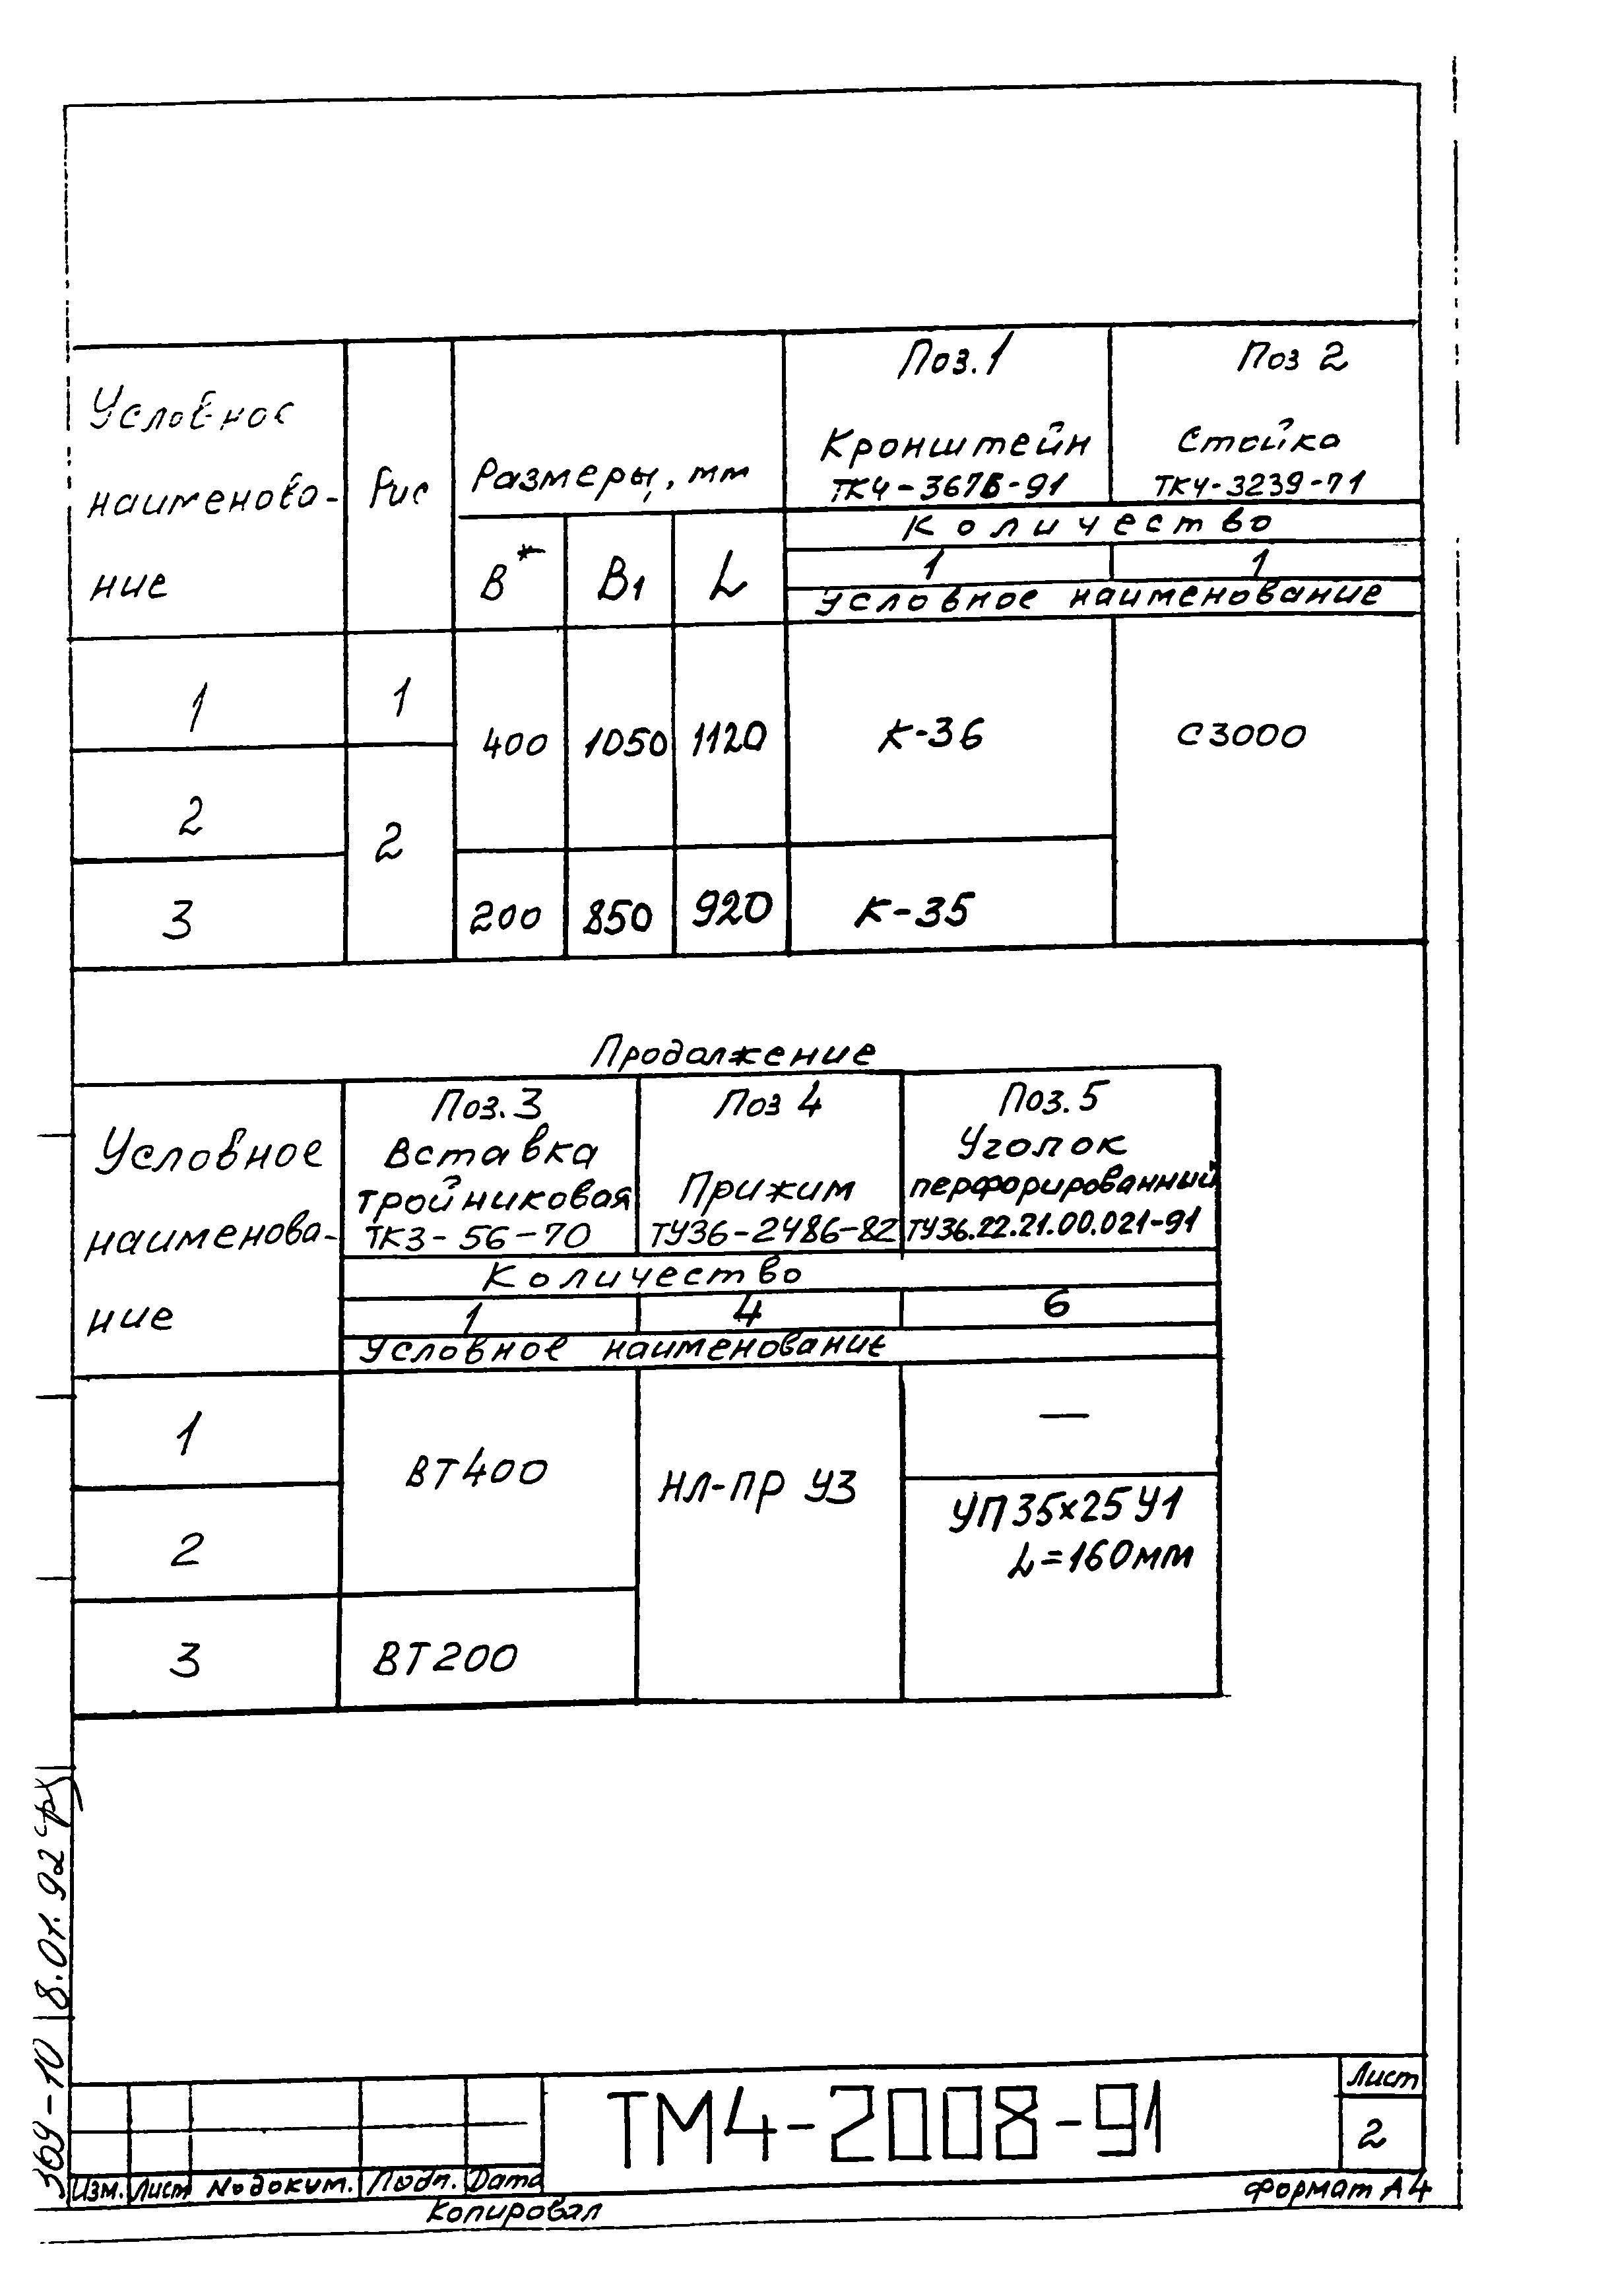 Условное
наименова-
ние
Рис
Размеры, мм
Поз.1
Кронштейн
ТК4-3676-91
Поз 2
Стойка
ТК4-3239-71
Количество
1 1
Условное наименование
В* В1 L
1 1 400 1050 1120 К-36 С3000
2 2
3 200 850 920 К-35
Продолжение
Условное
наименова-
ние
Поз.3
Вставка
тройниковая
ТК3-56-70
Поз 4
Прижим
ТУ36-2486-82
Поз.5
Уголок
перфорированный
ТУ36.22.21.00.021-91
Количество
1 4 6
Условное наименование
1 ВТ400 НЛ-ПР У3 —
2 УП 35х25 У1
L=160мм
3 ВТ200
369-10 8.01.92
ТМ4-2008-91
Лист
2
Изм. Лист №докум. Подп. Дата
Копировал
Формат А4